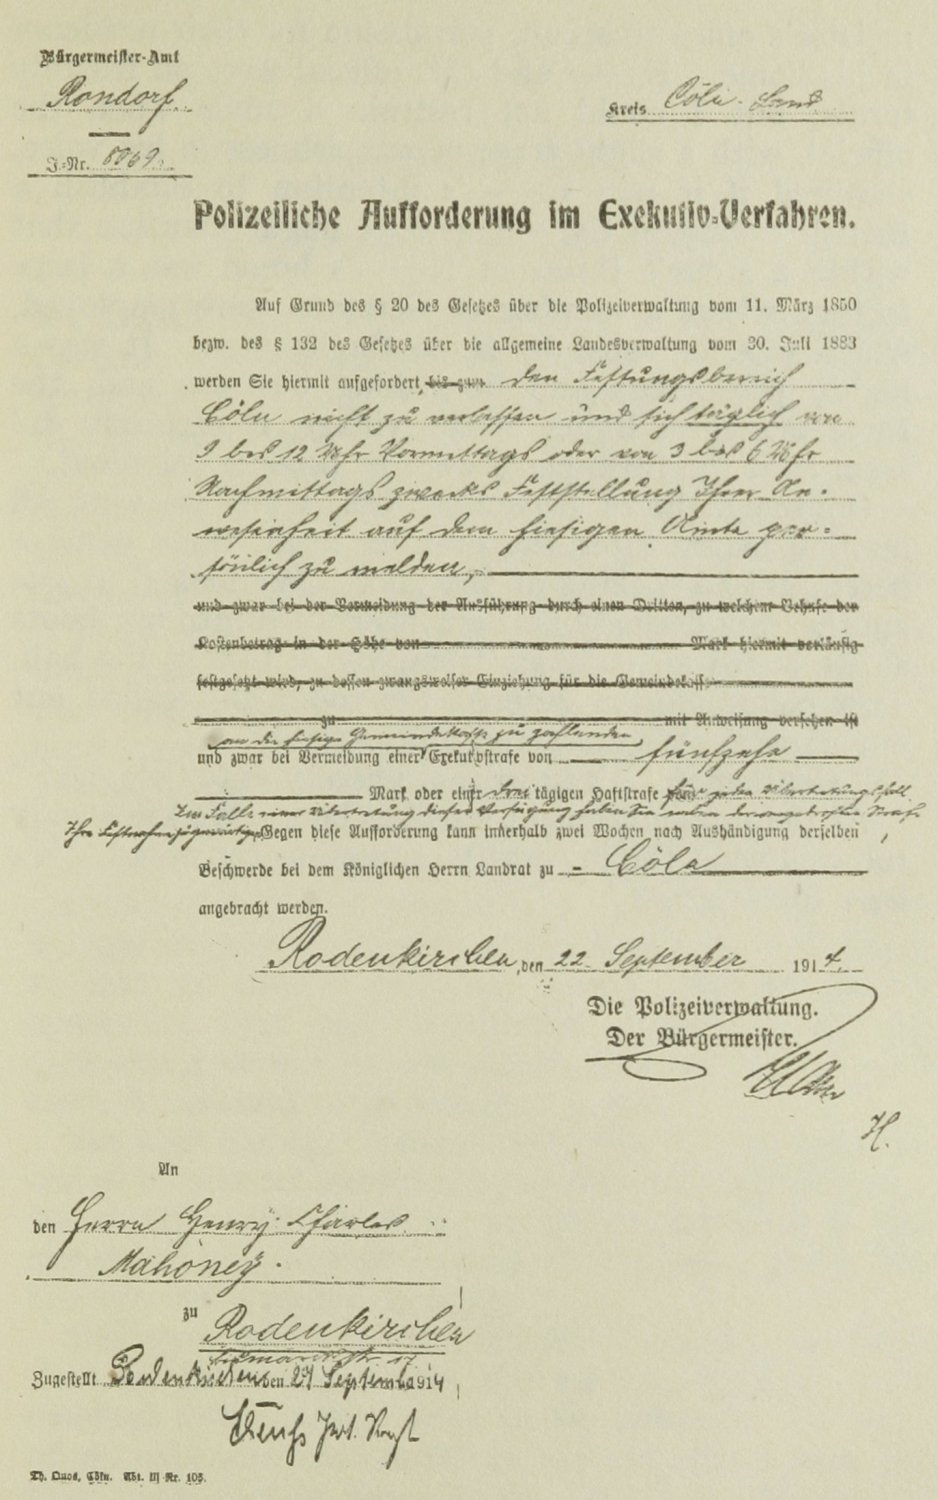 Bürgermeister-Amt
Rondorf
Kreis Cöln-Land
J.-Nr. 8069.
Polizeiliche Aufforderung im Exekutiv-Verfahren.
Auf Grund des § 20 des Gesetzes über die Polizeiverwaltung vom 11. März 1850
bezw. des § 132 des Gesetzes über die allgemeine Landesverwaltung vom 30. Juli 1883
werden Sie hiermit aufgefordert, bis zum den Festungsbereich
Cöln nicht zu verlassen und sich täglich von
9 bis 12 Uhr Vormittags oder von 3 bis 6 Uhr
Nachmittags zwecks Feststellung Ihrer An-
wesenheit auf dem hiesigen Amte per-
sönlich zu melden,
und zwar bei der Vermeidung der Ausführung durch einen Dritten, zu welchem Behufe der
Kostenbetrag in der Höhe von Mark hiermit vorläufig
festgesetzt wird, zu dessen zwangsweiser Einziehung für die Gemeindekasse
zu mit Anweisung versehen ist
an die hiesige Gemeindekasse zu zahlenden
und zwar bei Vermeidung einer Exekutivstrafe von fünfzehn
Mark oder einer drei tägigen Haftstrafe für jeden Übertretungsfall
Im Falle einer Übertretung dieser Verfügung haben Sie neben der angedrohten Strafe
Ihre Festnahme zu gewärtigen. Gegen diese Aufforderung kann innerhalb zwei Wochen nach Aushändigung derselben
Beschwerde bei dem Königlichen Herrn Landrat zu - Cöln
angebracht werden.
Rodenkirchen, den 22. September 1914.
Die Polizeiverwaltung.
Der Bürgermeister.
H.
An
den Herrn Henry Charles
Mahoney.
zu Rodenkirchen
Zugestellt Rodenkirchen den 24 September 1914
Th. Quos, Cöln. Abt. III Nr. 103.